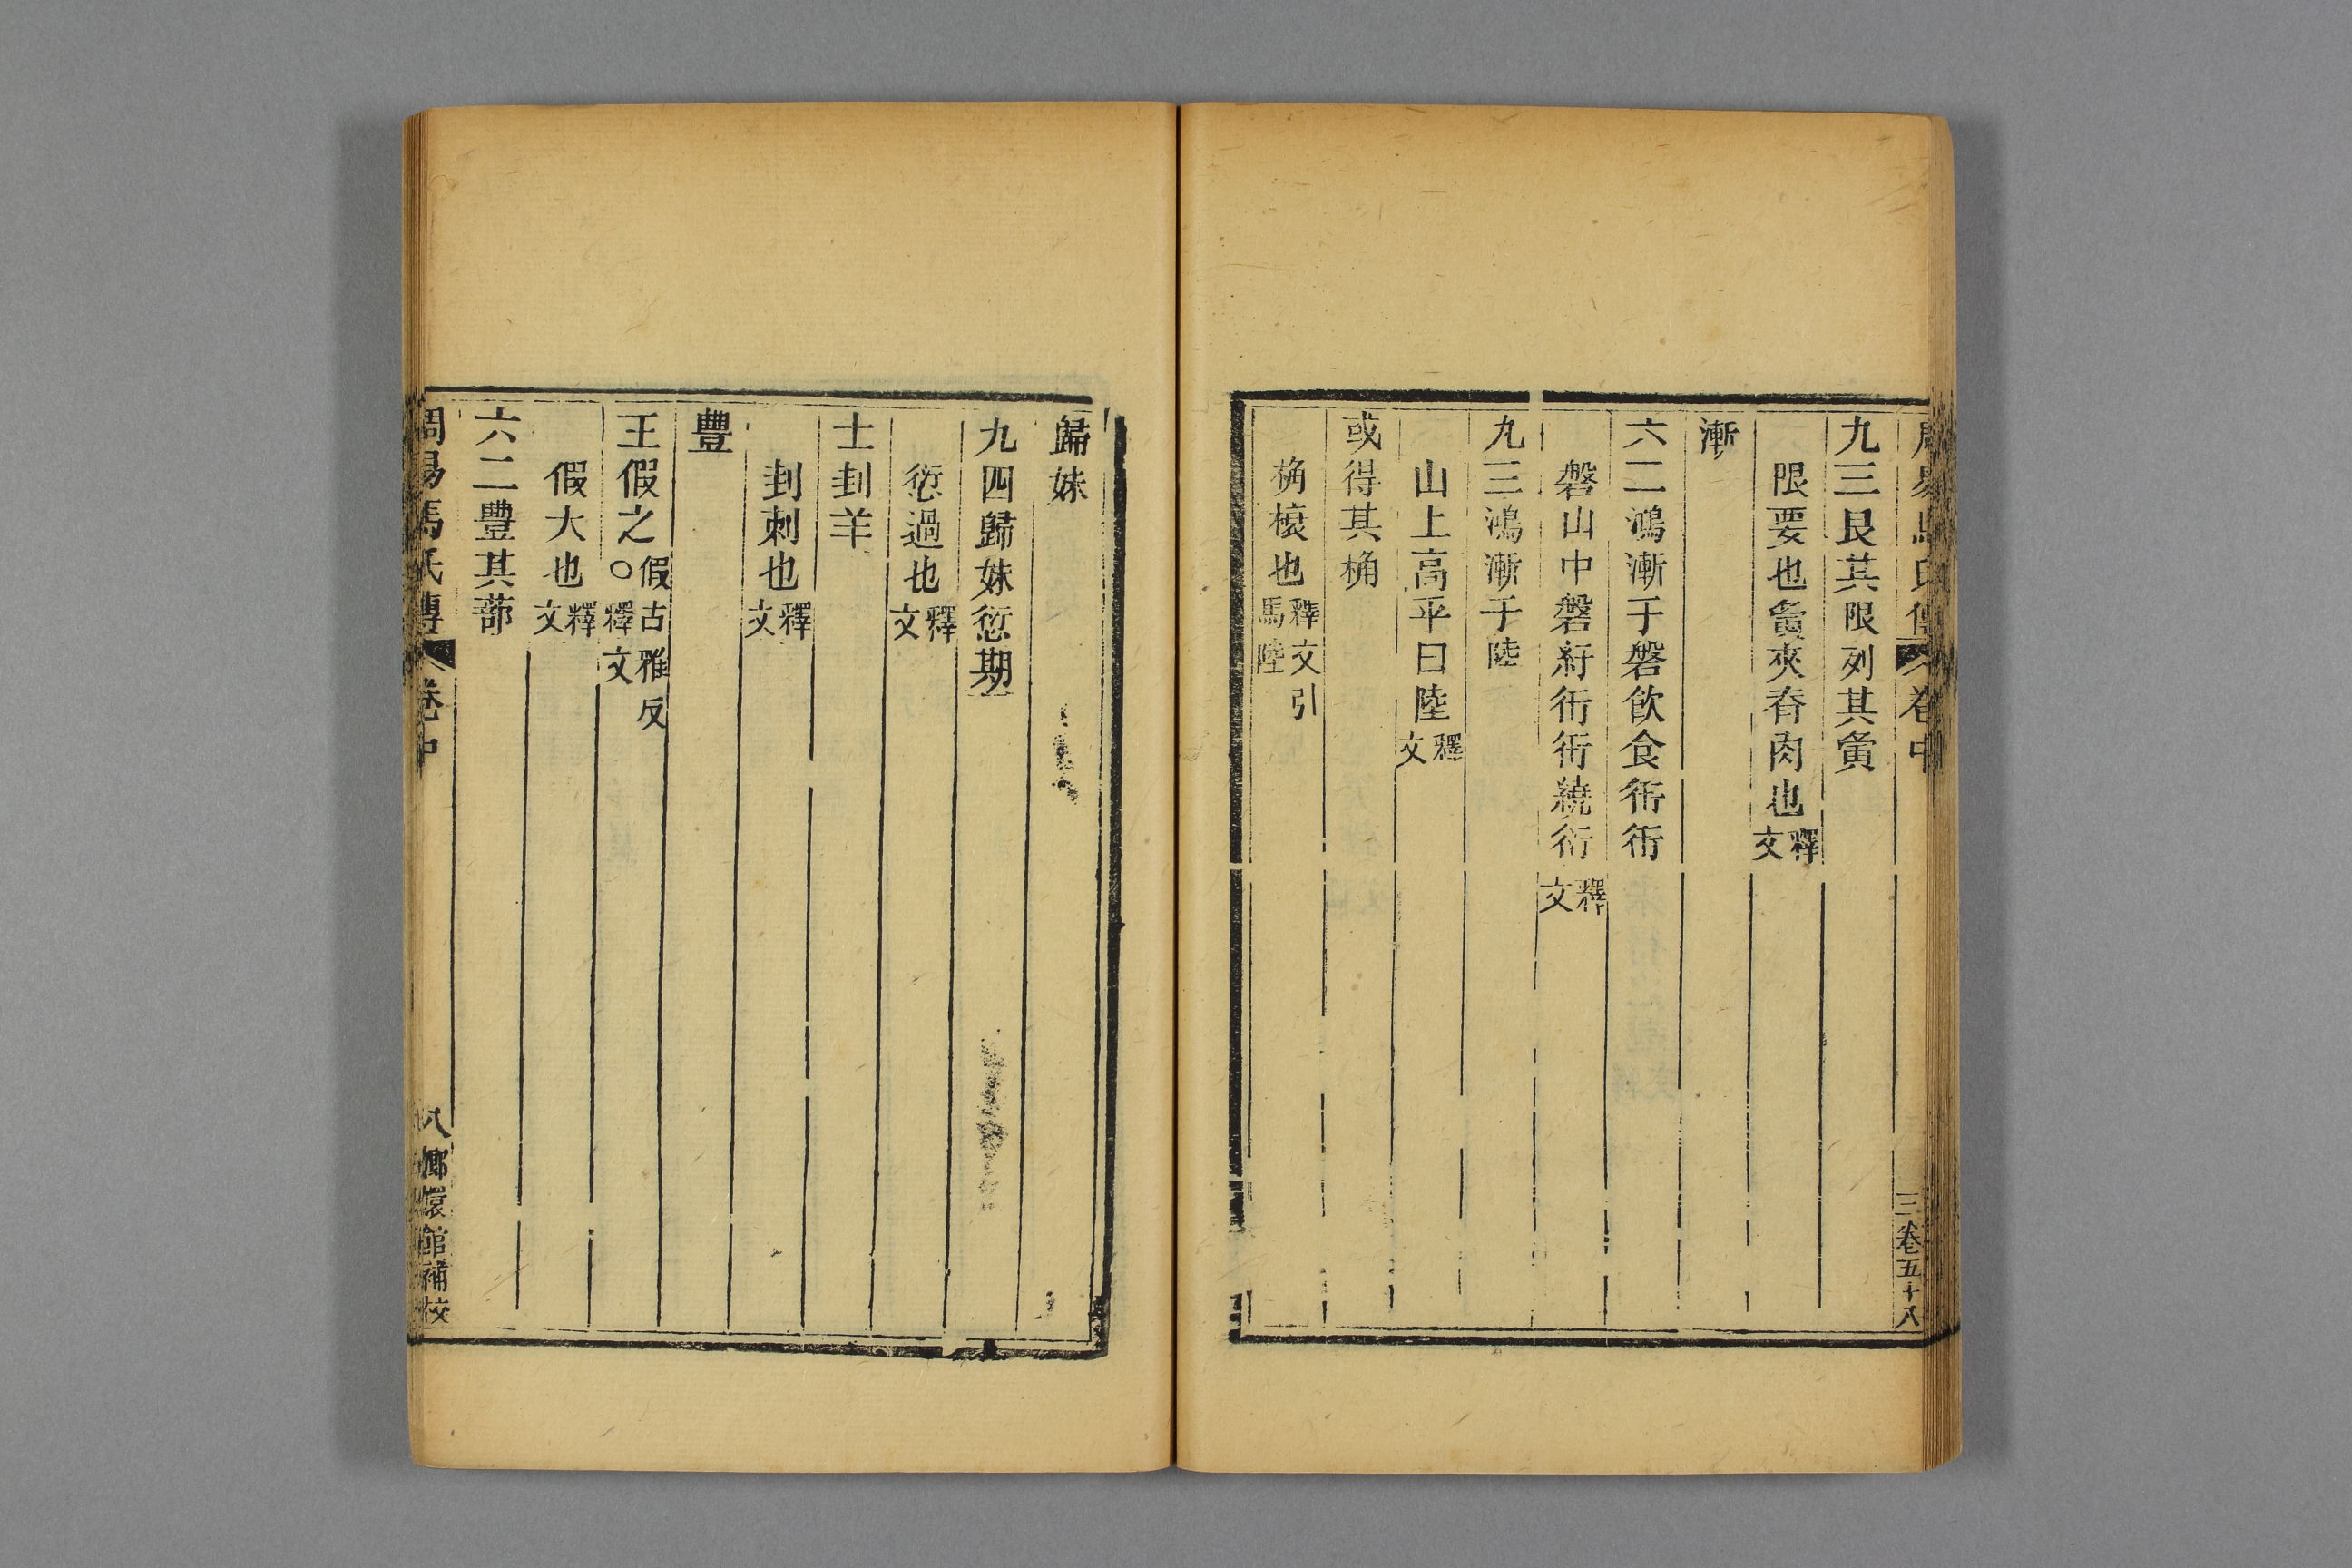 周易馬氏傳 卷中 三 卷五十八
九三艮其限列其夤
限要也夤夾脊肉也釋文
漸
六二鴻漸于磐飲食衎衎
磐山中磐紆衎衎繞衎釋文
九三鴻漸于陸
山上高平曰陸釋文
或得其桷
桷榱也釋文引馬陸
歸妹
九四歸妹愆期
愆過也釋文
士刲羊
刲刺也釋文
豐
王假之○假古雅反釋文
假大也釋文
六二豐其蔀
周易馬氏傳 卷中 八 嫏嬛館補校